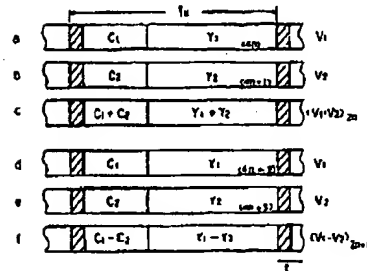 a C₁ Y₁ (4n) V₁
b C₂ Y₂ (4n+1) V₂
c C₁ + C₂ Y₁ + Y₂ (V₁+V₂)₂ₙ
d C₁ Y₁ V₁
e C₂ Y₂ V₂
f C₁ - C₂ Y₁ - Y₂ (V₁-V₂)₂ₙ₊₁